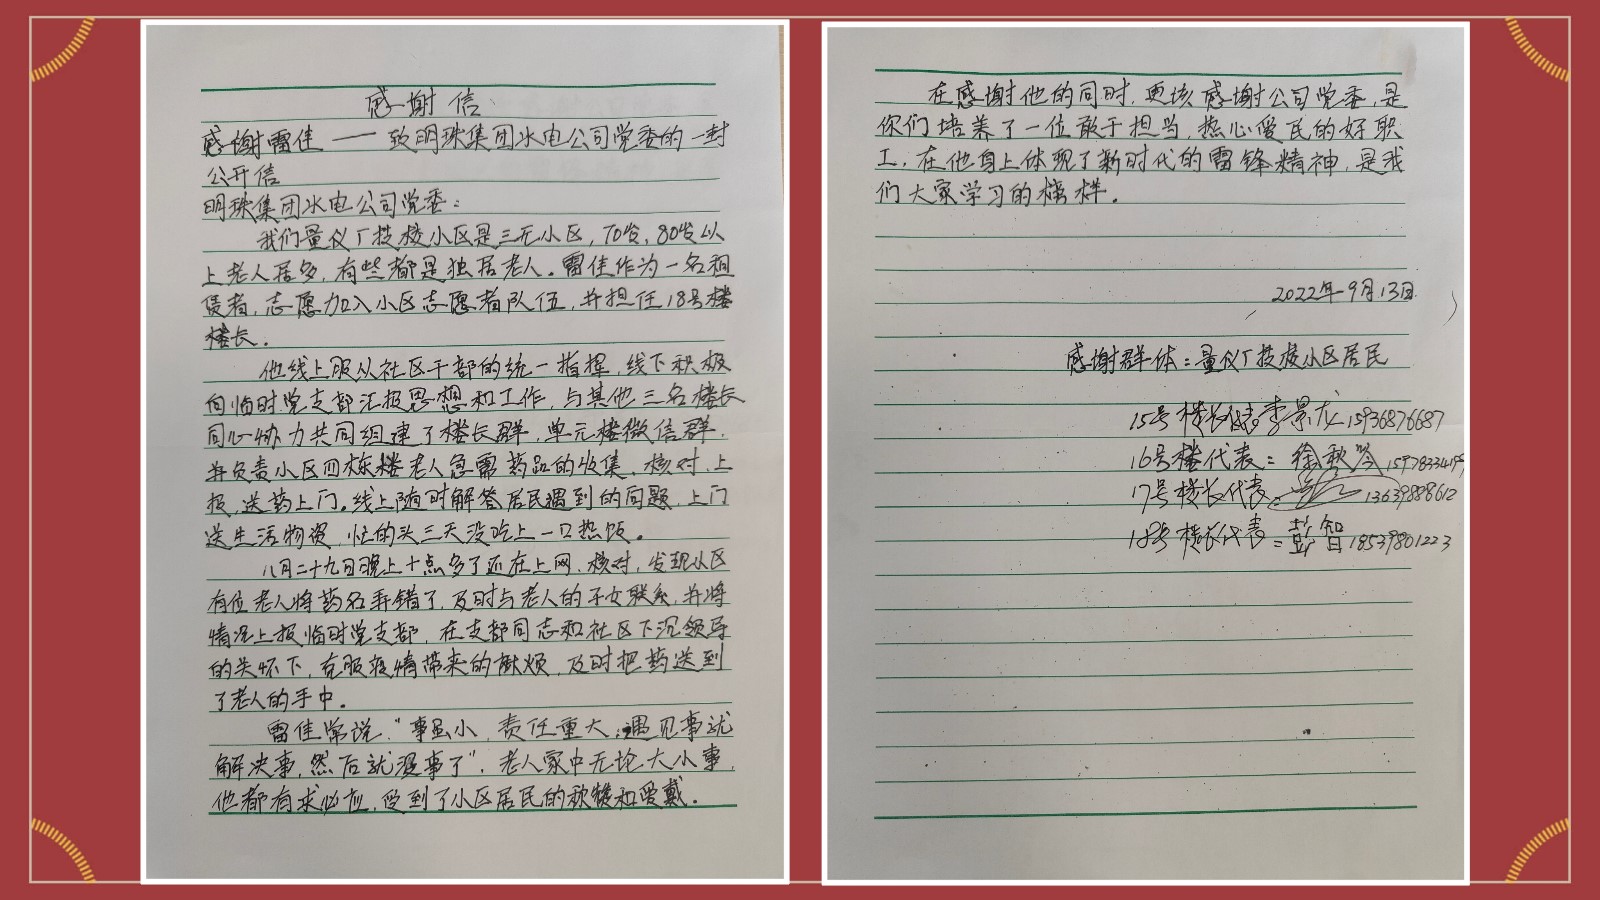 感谢信
感谢雷佳——致明珠集团水电公司党委的一封
公开信
明珠集团水电公司党委：
我们量仪厂技校小区是三无小区，70岁、80岁以
上老人居多，有些都是独居老人。雷佳作为一名租
赁者，志愿加入小区志愿者队伍，并担任18号楼
楼长。
他线上服从社区干部的统一指挥，线下积极
向临时党支部汇报思想和工作，与其他三名楼长
同心协力共同组建了楼长群，单元楼微信群，
并负责小区四栋楼老人急需药品的收集、核对、上
报，送药上门。线上随时解答居民遇到的问题，上门
送生活物资，忙的头三天没吃上一口热饭。
八月二十九日晚上十点多了还在上网、核对，发现小区
有位老人将药名弄错了，及时与老人的子女联系，并将
情况上报临时党支部，在支部同志和社区下沉领导
的关怀下，克服疫情带来的麻烦，及时把药送到
了老人的手中。
雷佳常说，“事虽小，责任重大，遇见事就
解决事，然后就没事了”，老人家中无论大小事，
他都有求必应，受到了小区居民的称赞和爱戴。
在感谢他的同时，更该感谢公司党委，是
你们培养了一位敢于担当，热心爱民的好职
工，在他身上体现了新时代的雷锋精神，是我
们大家学习的榜样。
2022年9月13日
感谢群体：量仪厂技校小区居民
15号楼长代表李景龙15936876687
16号楼代表：徐 1597833
17号楼长代表： 13639888612
18号楼长代表：彭智18539801223